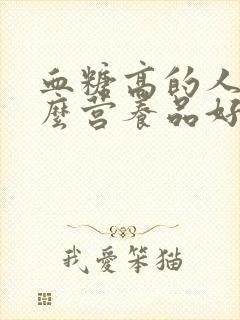 血糖高的人
麼营养品好
我愛笨猫